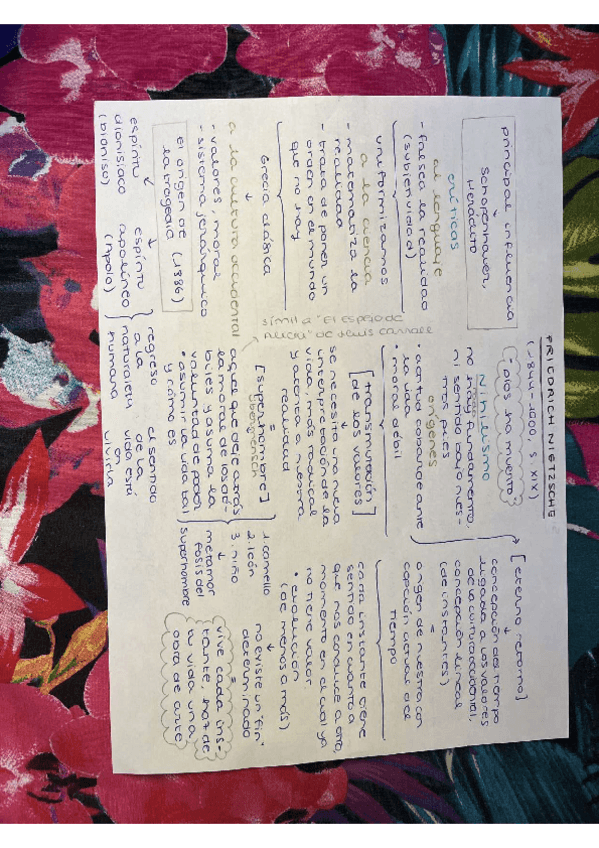 FRIEDRICH NIETZSCHE
(1844-1900, S XIX)
"Dios ha muerto"
principal influencia
Schopenhauer,
Heráclito
críticas
al lenguaje
- falsea la realidad
(subjetividad)
uniformizamos
a la ciencia
- matematiza la
realidad
- trata de poner un
orden en el mundo
que no hay
Grecia clásica
a la cultura occidental
- valores, moral
- sistema jerárquico
El origen de
la tragedia (1886)
espíritu
dionisíaco
(Dioniso)
espíritu
apolíneo
(Apolo)
regreso
a la
naturaleza
humana
el sentido
de
vida está
en
vivirla
Nihilismo
no hay fundamento,
ni sentido bajo nues-
tros pies
orígenes
• actitud cobarde ante
la vida
• moral débil
símil a "El espejo de
Alicia" de Lewis Carroll
[transmutación
de los valores]
se necesita una nueva
interpretación de la
vida, más radical
y acorde a nuestra
realidad
[superhombre]
=
Übermensch
aquel que deje atrás
la moral de los dé-
biles y asuma la
voluntad de poder
• asumir la vida tal
y como es
1. camello
2. león
3. niño
metamor
fosis del
superhombre
[eterno retorno]
concepción del tiempo
ligada a los valores
de la cultura occidental,
concepción lineal
(de instantes)
=
origen de nuestra con
cepción actual del
tiempo
cada instante tiene
sentido en cuanto a
que nos empuje a otro,
momento en el cual ya
no tiene valor.
• evolución
(de menos a más)
no existe un "fin"
determinado
=
vive cada ins-
tante, haz de
tu vida una
obra de arte